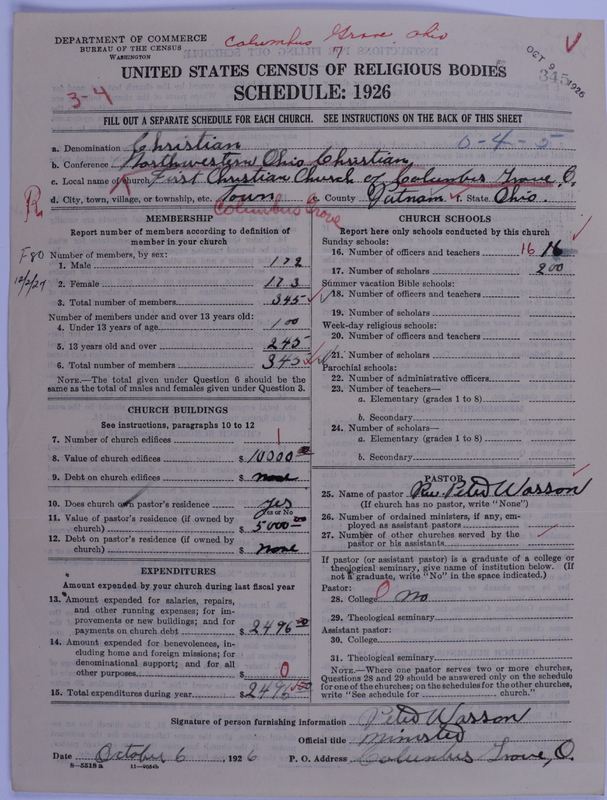 DEPARTMENT OF COMMERCE
BUREAU OF THE CENSUS
WASHINGTON
Columbus Grove, Ohio
7
OCT 9 1926
345
UNITED STATES CENSUS OF RELIGIOUS BODIES
3-4
SCHEDULE: 1926
FILL OUT A SEPARATE SCHEDULE FOR EACH CHURCH. SEE INSTRUCTIONS ON THE BACK OF THIS SHEET
a. Denomination Christian 0-4-5
b. Conference Northwestern Ohio Christian
c. Local name of church First Christian Church of Columbus Grove, O.
d. City, town, village, or township, etc. Town e. County Putnam f. State Ohio.
R
Columbus Grove
MEMBERSHIP
Report number of members according to definition of member in your church
F80
12/2/27
Number of members, by sex:
1. Male 172
2. Female 173
3. Total number of members 345
Number of members under and over 13 years old:
4. Under 13 years of age 100
5. 13 years old and over 245
6. Total number of members 345
NOTE.—The total given under Question 6 should be the
same as the total of males and females given under Question 3.
CHURCH BUILDINGS
See instructions, paragraphs 10 to 12
7. Number of church edifices 1
8. Value of church edifices $ 10000 00
9. Debt on church edifices $ none
10. Does church own pastor's residence yes
Yes or No
11. Value of pastor's residence (if owned by
church) $ 5000 00
12. Debt on pastor's residence (if owned by
church) $ none
EXPENDITURES
Amount expended by your church during last fiscal year
13. Amount expended for salaries, repairs,
and other running expenses; for im-
provements or new buildings; and for
payments on church debt $ 2496 50
14. Amount expended for benevolences, in-
cluding home and foreign missions; for
denominational support; and for all
other purposes $ 0
15. Total expenditures during year $ 2496 50
CHURCH SCHOOLS
Report here only schools conducted by this church
Sunday schools:
16. Number of officers and teachers 16 16
17. Number of scholars 200
Summer vacation Bible schools:
18. Number of officers and teachers
19. Number of scholars
Week-day religious schools:
20. Number of officers and teachers
21. Number of scholars
Parochial schools:
22. Number of administrative officers
23. Number of teachers—
a. Elementary (grades 1 to 8)
b. Secondary
24. Number of scholars—
a. Elementary (grades 1 to 8)
b. Secondary
PASTOR
25. Name of pastor Rev. Peter Wasson
(If church has no pastor, write "None")
26. Number of ordained ministers, if any, em-
ployed as assistant pastors
27. Number of other churches served by the
pastor or his assistants
If pastor (or assistant pastor) is a graduate of a college or
theological seminary, give name of institution below. (If
not a graduate, write "No" in the space indicated.)
Pastor:
28. College 0 No
29. Theological seminary
Assistant pastor:
30. College
31. Theological seminary
NOTE.—Where one pastor serves two or more churches,
Questions 28 and 29 should be answered only on the schedule
for one of the churches; on the schedules for the other churches,
write "See schedule for church."
Signature of person furnishing information Peter Wasson
Official title Minister
Date October 6, 1926 P. O. Address Columbus Grove, O.
8-5518a 11-9054b